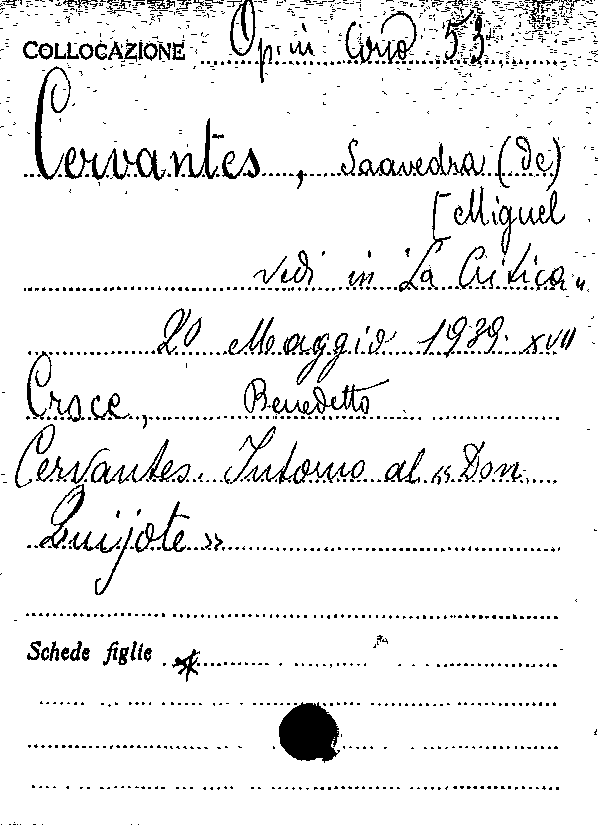 COLLOCAZIONE Op. in Corso 53
Cervantes, Saavedra (de)
[Miguel
vedi in "La Critica"
20 Maggio 1939. XVII
Croce, Benedetto
Cervantes. Intorno al «Don
Quijote»
Schede figlie *